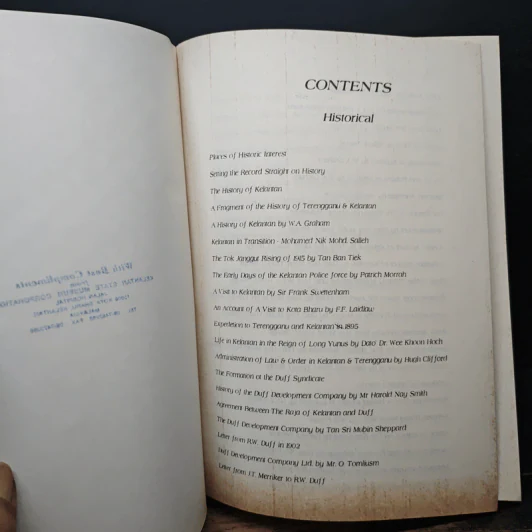 With Best Compliments
from
KELANTAN STATE MUSEUM CORPORATION
CONTENTS
Historical
Places of Historic Interest
Setting the Record Straight on History
The History of Kelantan
A Fragment of the History of Terengganu & Kelantan
A History of Kelantan by W.A. Graham
Kelantan in Transition - Mohamed Nik Mohd. Salleh
The Tok Janggut Rising of 1915 by Tan Ban Tiek
The Early Days of the Kelantan Police force by Patrich Morrah
A Visit to Kelantan by Sir Frank Swettenham
An Account of A Visit to Kota Bharu by P.F. Laidlaw
Expedition to Terengganu and Kelantan 1895
Life in Kelantan in the Reign of Long Yunus by Dato' Dr. Wee Khoon Hoch
Administration of Law & Order in Kelantan & Terengganu by Hugh Clifford
The Formation of the Duff Syndicate
History of the Duff Development Company by Mr Harold Nay Smith
Agreement Between The Raja of Kelantan and Duff
The Duff Development Company by Tan Sri Mubin Sheppard
Letter from R.W. Duff in 1902
Duff Development Company Ltd. by Mr. O. Tomliusm
Letter from J.T. Merriker to R.W. Duff